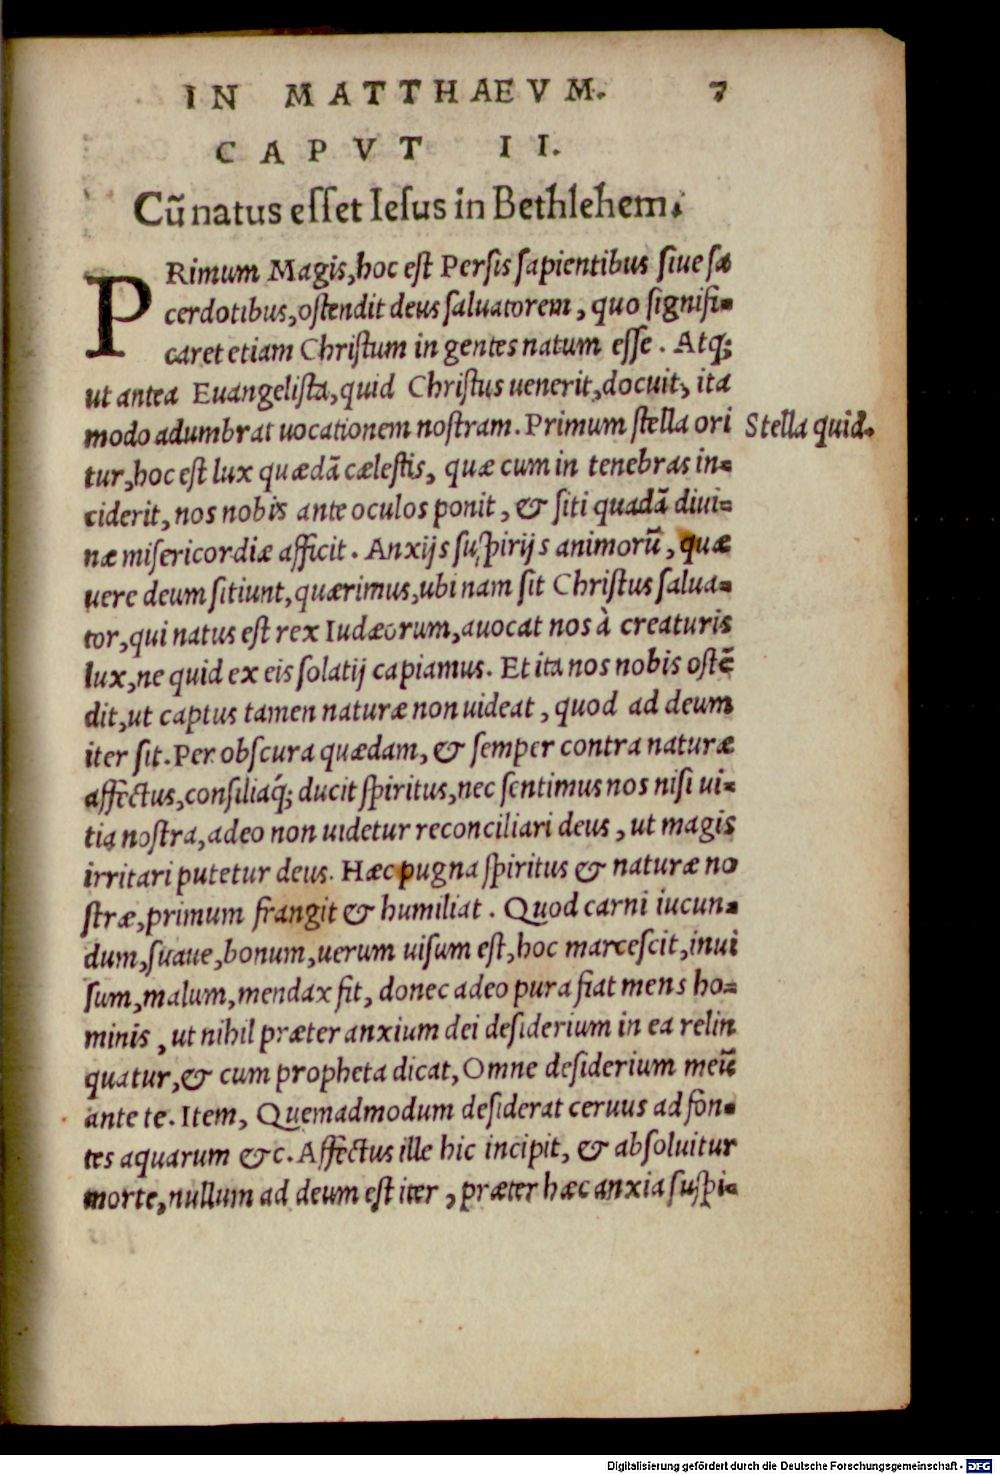 IN MATTHAEVM. 7
CAPVT II.
Cũ natus eſſet Ieſus in Bethlehem.
PRimum Magis, hoc eſt Perſis ſapientibus ſiue ſa
cerdotibus, oſtendit deus ſaluatorem, quo ſignifi-
caret etiam Chriſtum in gentes natum eſſe. Atq;
ut antea Euangeliſta, quid Chriſtus uenerit, docuit, ita
modo adumbrat uocationem noſtram. Primum ſtella ori
Stella quid.
tur, hoc eſt lux quædã cæleſtis, quæ cum in tenebras in-
ciderit, nos nobis ante oculos ponit, & ſiti quadã diui-
næ miſericordiæ afficit. Anxijs ſuſpirijs animorũ, quæ
uere deum ſitiunt, quærimus, ubi nam ſit Chriſtus ſalua-
tor, qui natus eſt rex Iudæorum, auocat nos à creaturis
lux, ne quid ex eis ſolatij capiamus. Et ita nos nobis oſtẽ
dit, ut captus tamen naturæ non uideat, quod ad deum
iter ſit. Per obſcura quædam, & ſemper contra naturæ
affectus, conſiliaq́; ducit ſpiritus, nec ſentimus nos niſi ui-
tia noſtra, adeo non uidetur reconciliari deus, ut magis
irritari putetur deus. Hæc pugna ſpiritus & naturæ no
ſtræ, primum frangit & humiliat. Quod carni iucun-
dum, ſuaue, bonum, uerum uiſum eſt, hoc marceſcit, inui
ſum, malum, mendax fit, donec adeo pura fiat mens ho-
minis, ut nihil præter anxium dei deſiderium in ea relin
quatur, & cum propheta dicat, Omne deſiderium meũ
ante te. Item, Quemadmodum deſiderat ceruus ad fon-
tes aquarum &c. Affectus ille hic incipit, & abſoluitur
morte, nullum ad deum eſt iter, præter hæc anxia ſuſpi-
Digitalisierung gefördert durch die Deutsche Forschungsgemeinschaft - DFG